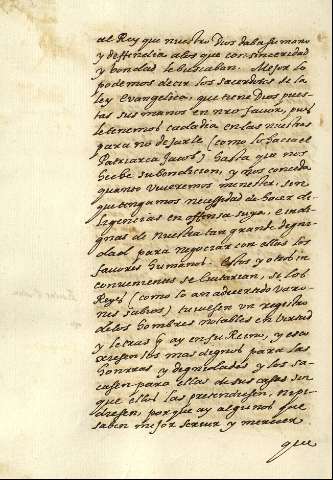 al Rey que nuestro Dios daba su mano
y deffendia a los que con sinceridad
y bondad le buscaban. Mejor lo
podemos decir los sacerdotes de la
ley evangelica, que tiene Dios pues-
tas sus manos en nro favor, pues
le tenemos cada dia en las nuestras
para no dejarle (como lo hacia el
Patriarca Jacob) hasta que nos
heche su bendicion, y nos conceda
quanto uvieremos menester, sin
que tengamos necessidad de hacer di-
ligencias en offensa suya, e indi-
gnas de nuestra tan grande digni-
dad para negociar con ellas los
favores humanos. Estos y otros in
convenientes se evitarian, si los
Reyes (como lo an advertido varo-
nes sabios) tuviesen un registro
de los hombres notables en virtud
y letras q ay en su Reino, y esco
giesen los mas dignos para las
honrras y dignidades y los sa-
casen para ellas de sus casas sin
que ellos las pretendiesen, ni pi-
diesen, porque ay algunos que
saben mejor servir y merecer
que